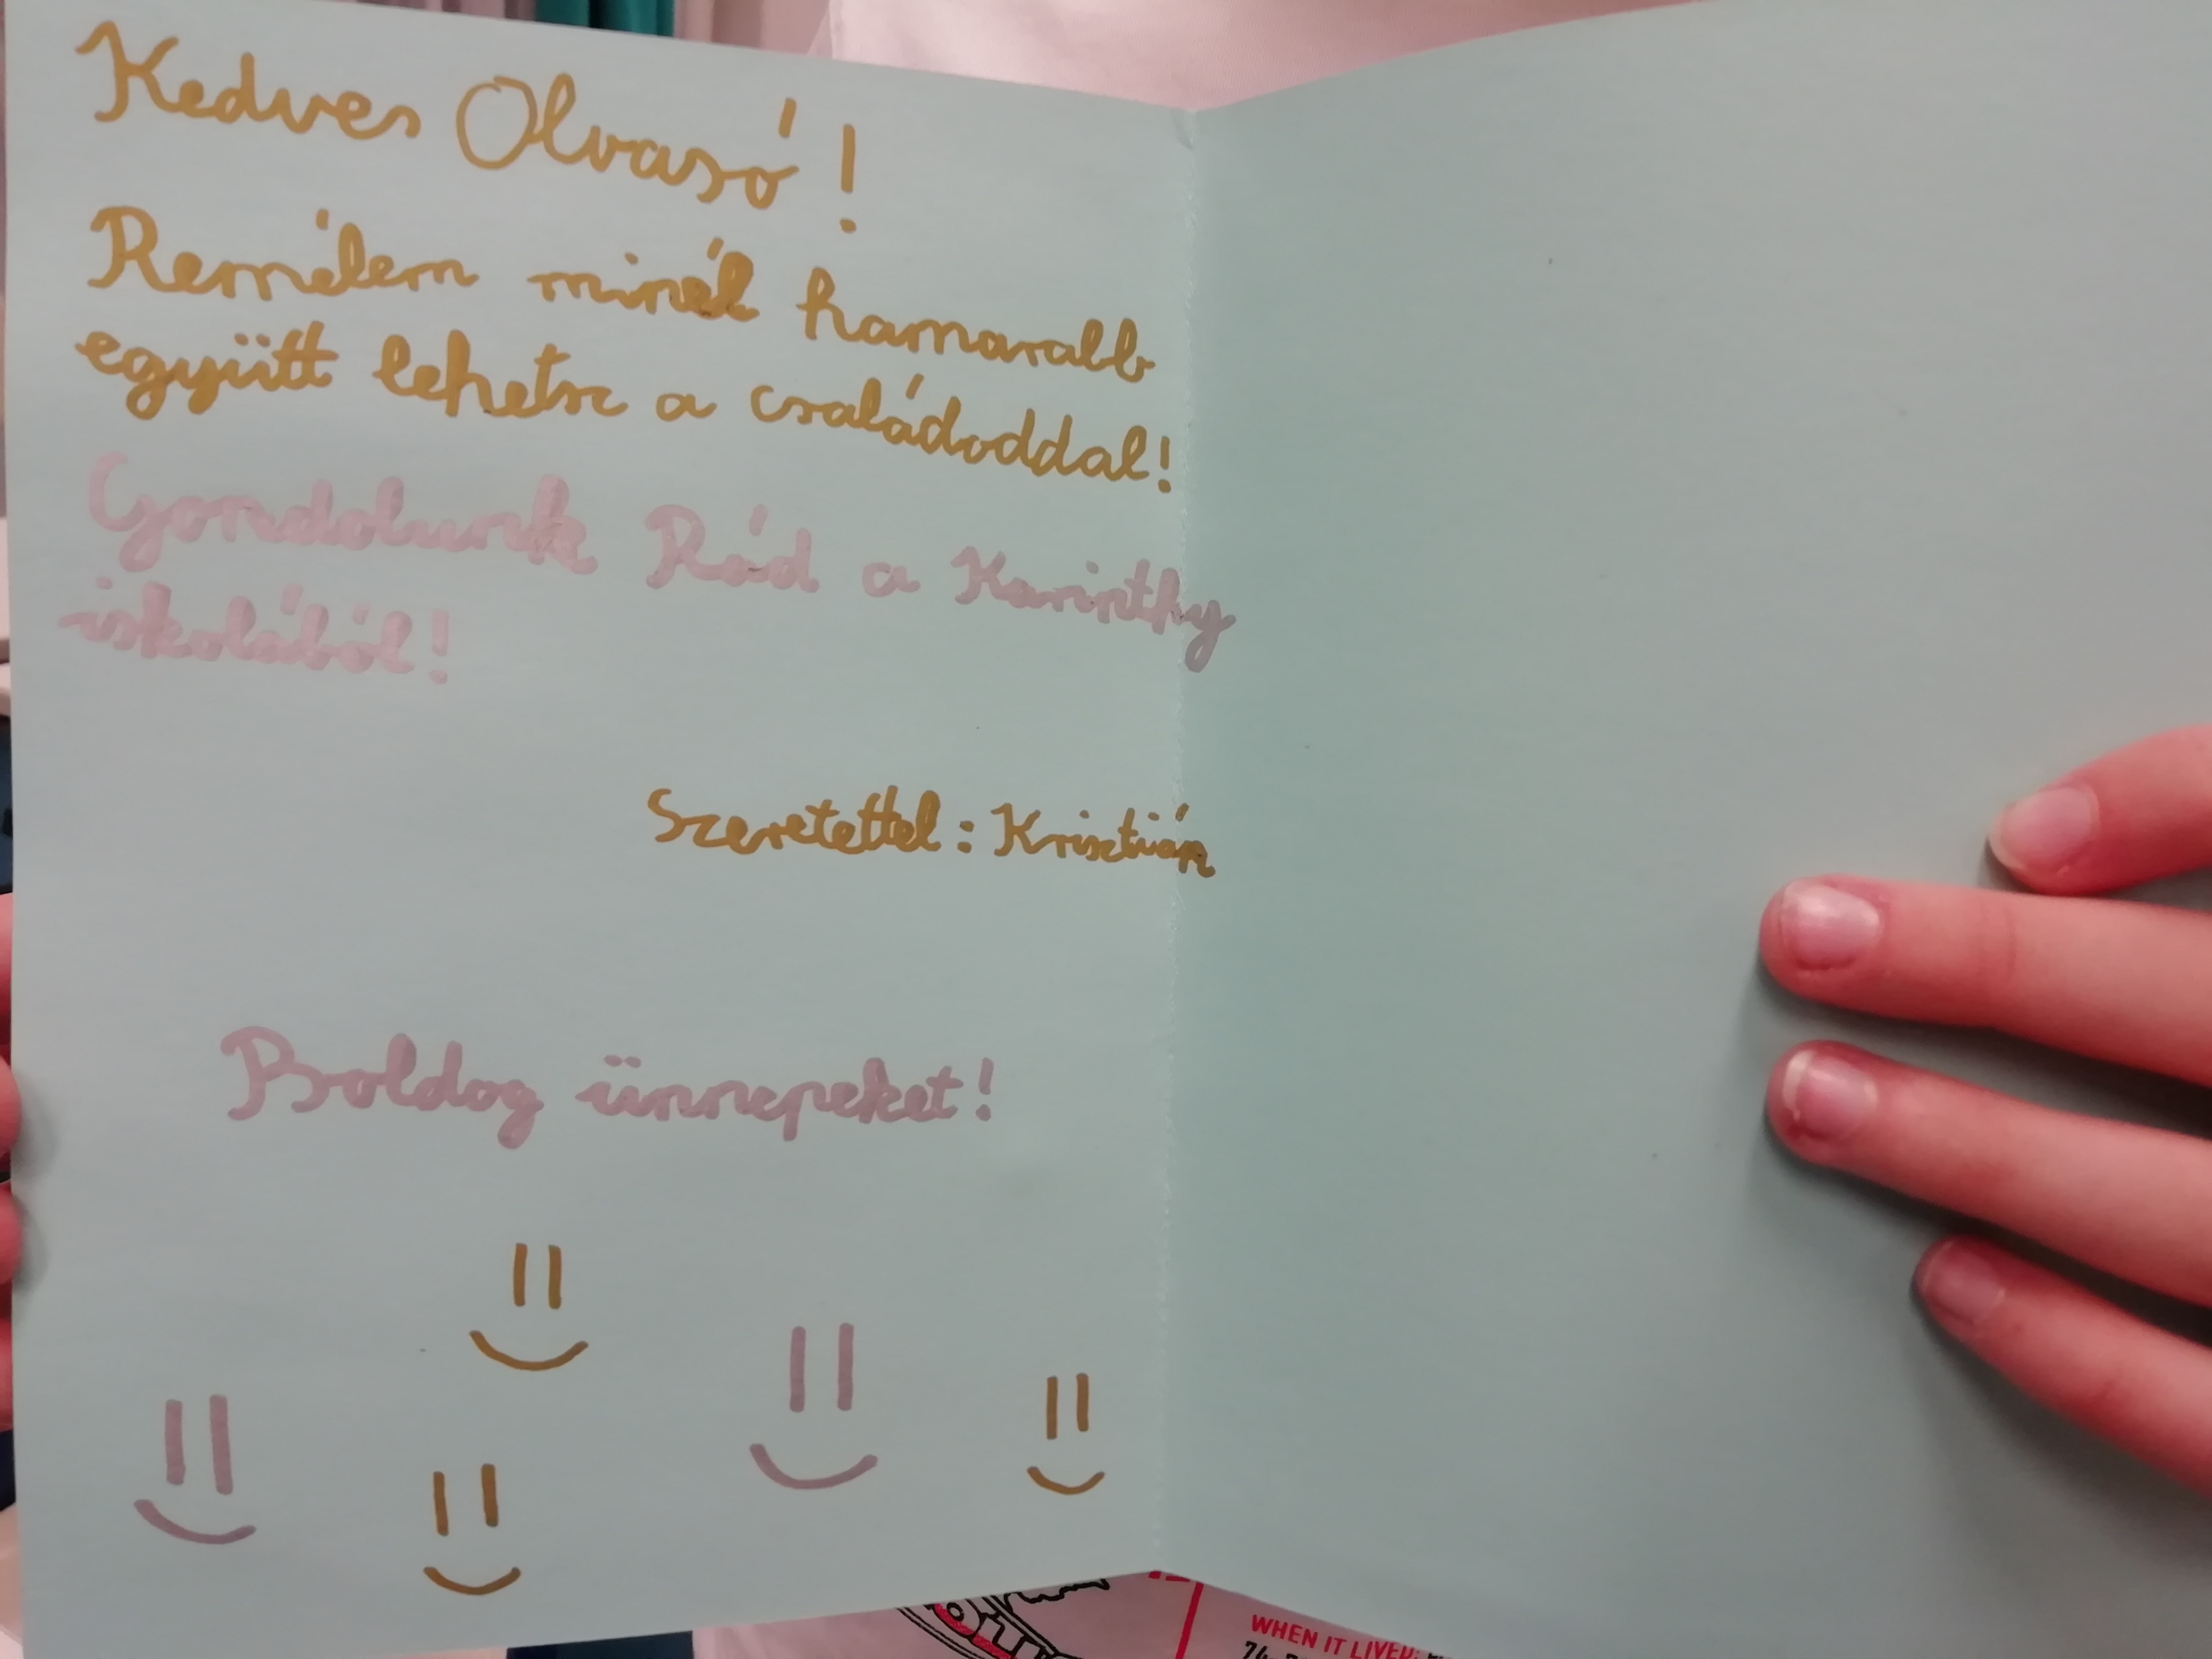 Kedves Olvasó!
Remélem minél hamarabb
együtt lehetsz a családoddal!
Gondolunk Rád a Karinthy
iskolából!
Szeretettel: Krisztián
Boldog ünnepeket!
WHEN IT LIVED: